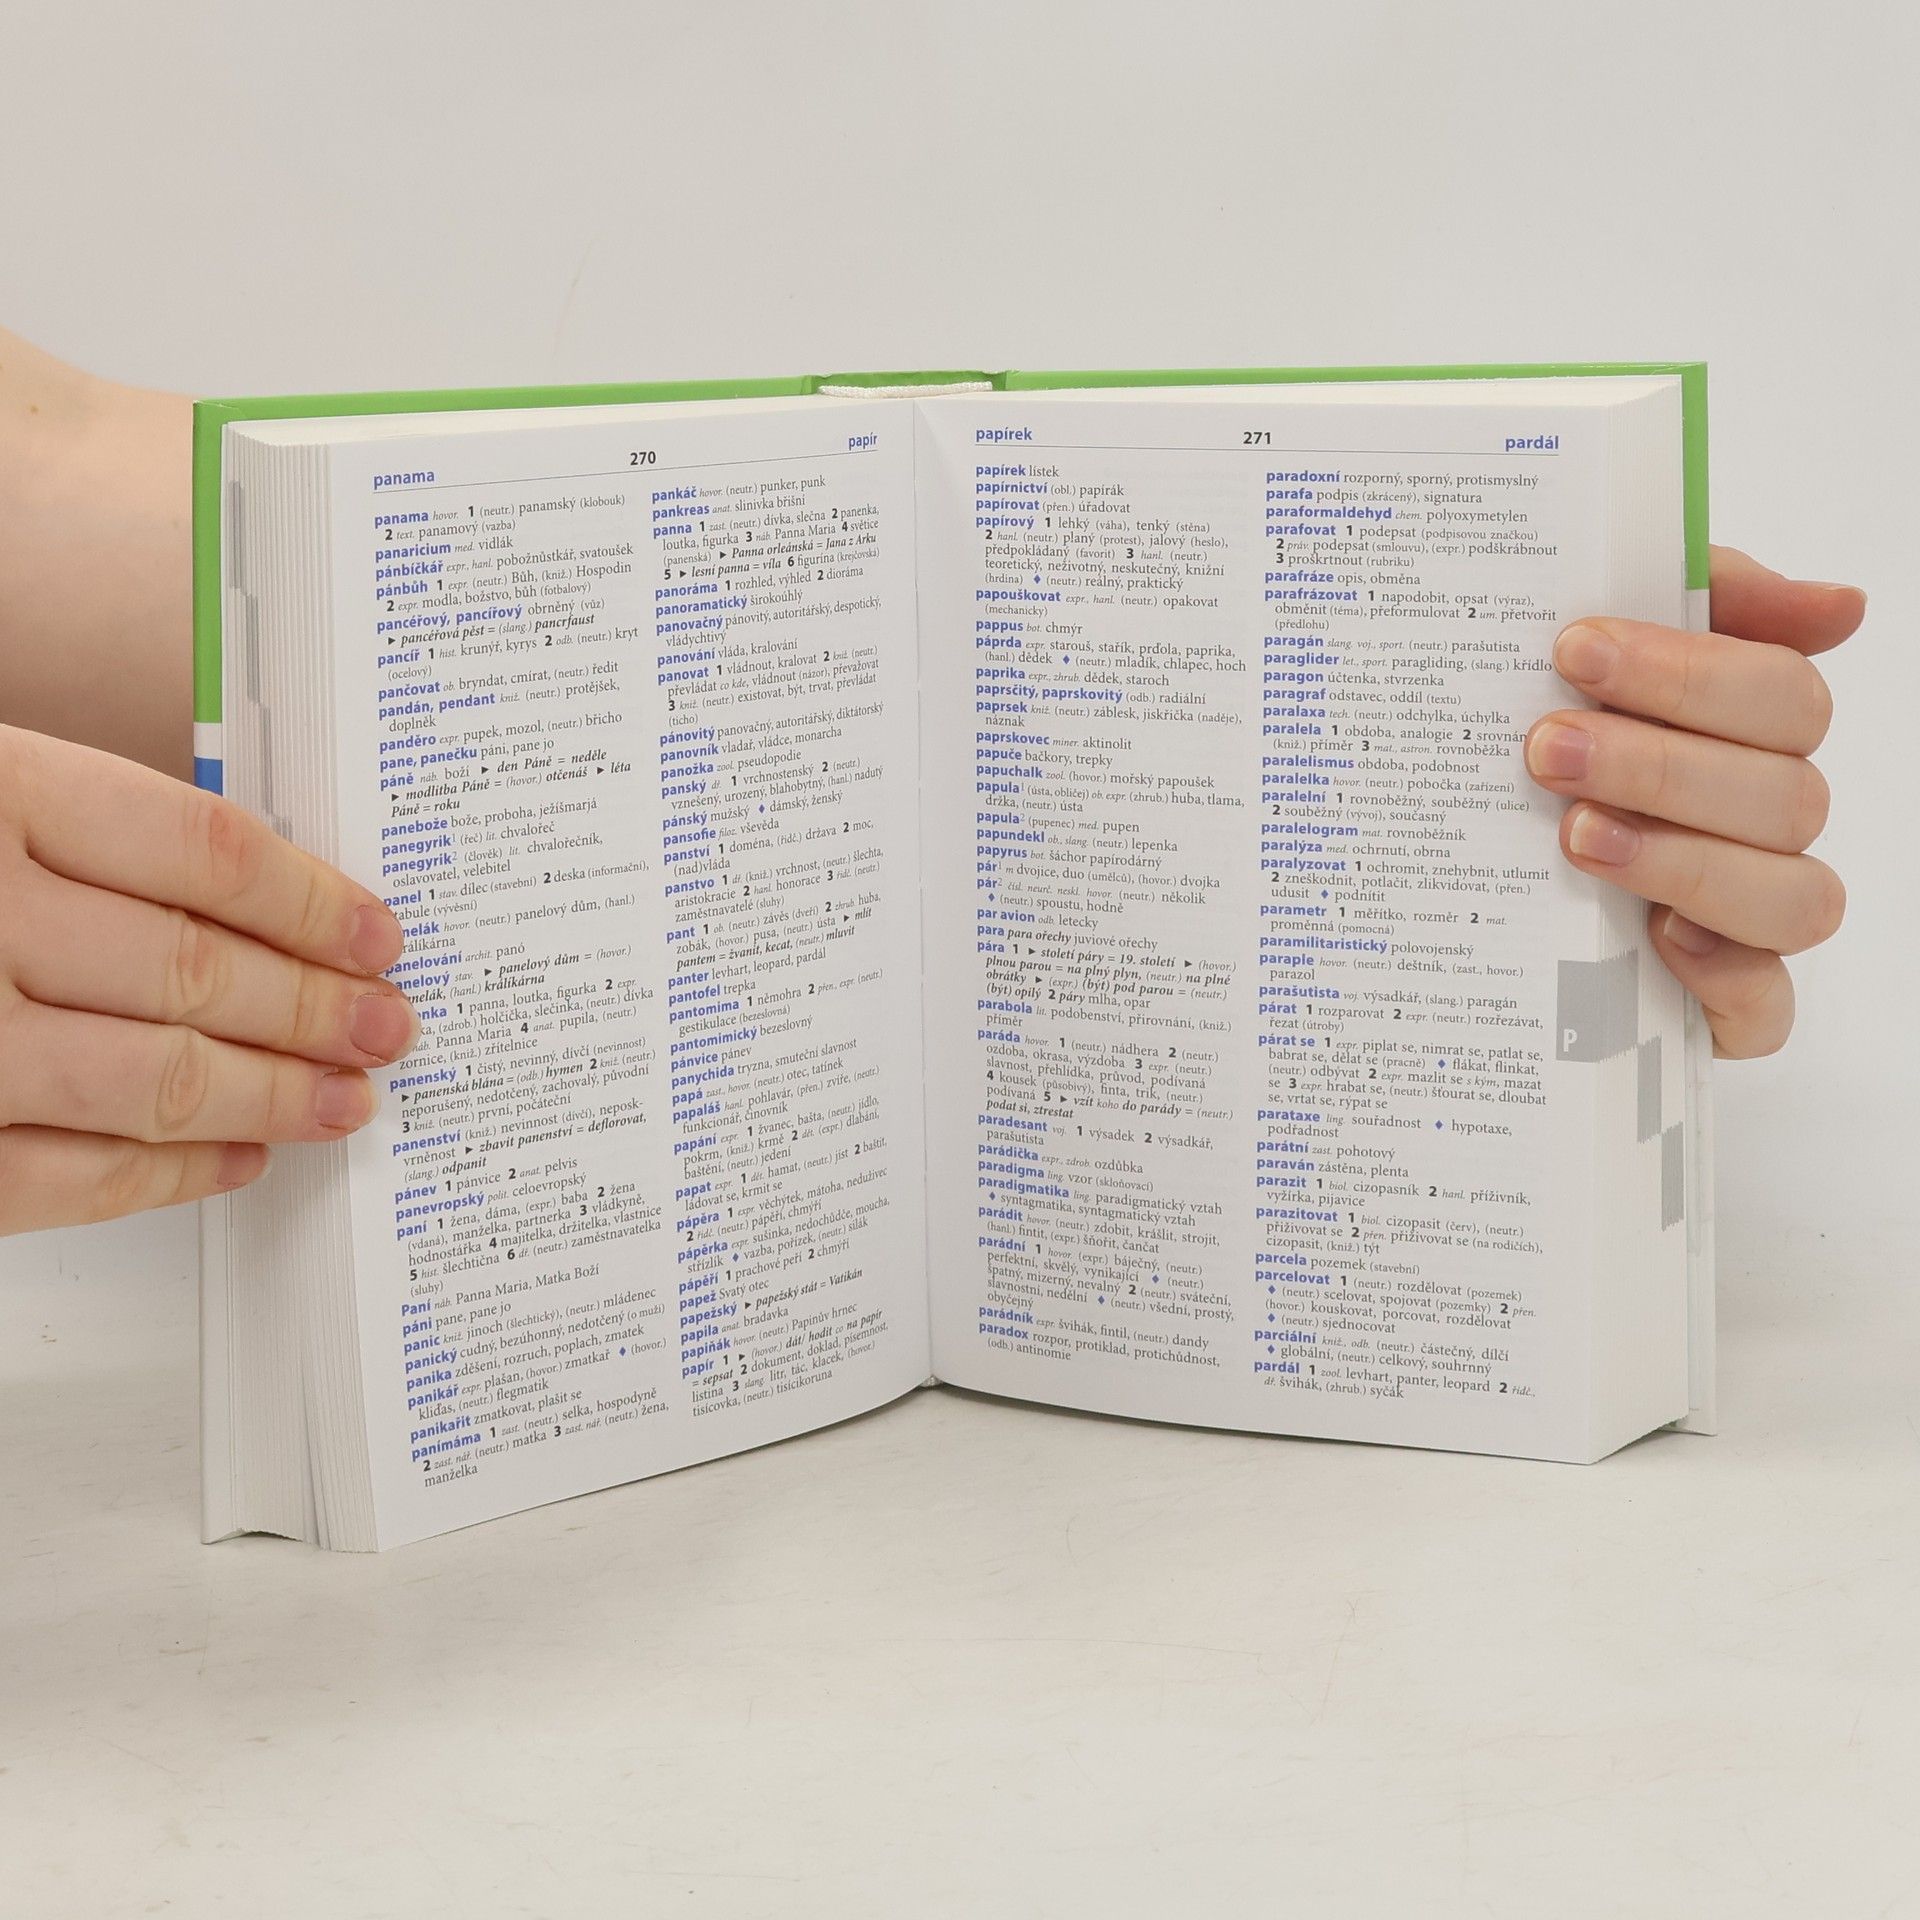 panama 270 papír
panama hovor. 1 (neutr.) panamský (klobouk)
2 text. panamový (vazba)
panaricium med. vidlák
pánbíčkář expr., hanl. pobožnůstkář, svatoušek
pánbůh 1 expr. (neutr.) Bůh, (kniž.) Hospodin
2 expr. modla, božstvo, bůh (fotbalový)
pancéřový, pancířový obrněný (vůz)
► pancéřová pěst = (slang.) pancrfaust
pancíř 1 hist. krunýř, kyrys 2 odb. (neutr.) kryt
(ocelový)
pančovat ob. bryndat, cmírat, (neutr.) ředit
pandán, pendant kniž. (neutr.) protějšek,
doplněk
panděro expr. pupek, mozol, (neutr.) břicho
pane, panečku páni, pane jo
páně náb. boží ► den Páně = neděle
► modlitba Páně = (hovor.) otčenáš ► léta
Páně = roku
panebože bože, proboha, ježíšmarjá
panegyrik¹ (řeč) lit. chvalořeč
panegyrik² (člověk) lit. chvalořečník,
oslavovatel, velebitel
panel 1 stav. dílec (stavební) 2 deska (informační),
tabule (vývěsní)
hovor. (neutr.) panelový dům, (hanl.)
králíkárna
panelování archit. panó
stav. ► panelový dům = (hovor.)
(hanl.) králíkárna
1 panna, loutka, figurka 2 expr.
(zdrob.) holčička, slečinka, (neutr.) dívka
náb. Panna Maria 4 anat. pupila, (neutr.)
zornice, (kniž.) zřítelnice
panenský 1 čistý, nevinný, dívčí (nevinnost)
► panenská blána = (odb.) hymen 2 kniž. (neutr.)
neporušený, nedotčený, zachovalý, původní
3 kniž. (neutr.) první, počáteční
panenství (kniž.) nevinnost (dívčí), neposk-
vrněnost ► zbavit panenství = deflorovat,
(slang.) odpanit
pánev 1 pánvice 2 anat. pelvis
panevropský polit. celoevropský
paní 1 žena, dáma, (expr.) baba 2 žena
(vdaná), manželka, partnerka 3 vládkyně,
hodnostářka 4 majitelka, držitelka, vlastnice
5 hist. šlechtična 6 dř. (neutr.) zaměstnavatelka
(sluhy)
Paní náb. Panna Maria, Matka Boží
páni pane, pane jo
panic kniž. jinoch (šlechtický), (neutr.) mládenec
panický cudný, bezúhonný, nedotčený (o muži)
panika zděšení, rozruch, poplach, zmatek
panikář expr. plašan, (hovor.) zmatkař ♦ (hovor.)
kliďas, (neutr.) flegmatik
panikařit zmatkovat, plašit se
panímáma 1 zast. (neutr.) selka, hospodyně
2 zast. nář. (neutr.) matka 3 zast. nář. (neutr.) žena,
manželka
pankáč hovor. (neutr.) punker, punk
pankreas anat. slinivka břišní
panna 1 zast. (neutr.) dívka, slečna 2 panenka,
loutka, figurka 3 náb. Panna Maria 4 světice
(panenská) ► Panna orleánská = Jana z Arku
5 ► lesní panna = víla 6 figurína (krejčovská)
panoráma 1 rozhled, výhled 2 dioráma
panoramatický širokoúhlý
panovačný pánovitý, autoritářský, despotický,
vládychtivý
panování vláda, kralování
panovat 1 vládnout, kralovat 2 kniž. (neutr.)
převládat co kde, vládnout (názor), převažovat
3 kniž. (neutr.) existovat, být, trvat, převládat
(ticho)
pánovitý panovačný, autoritářský, diktátorský
panovník vladař, vládce, monarcha
panožka zool. pseudopodie
panský dř. 1 vrchnostenský 2 (neutr.)
vznešený, urozený, blahobytný, (hanl.) nadutý
pánský mužský ♦ dámský, ženský
pansofie filoz. vševěda
panství 1 doména, (řidč.) država 2 moc,
(nad)vláda
panstvo 1 dř. (kniž.) vrchnost, (neutr.) šlechta,
aristokracie 2 hanl. honorace 3 řidč. (neutr.)
zaměstnavatelé (sluhy)
pant 1 ob. (neutr.) závěs (dveří) 2 zhrub. huba,
zobák, (hovor.) pusa, (neutr.) ústa ► mlít
pantem = žvanit, kecat, (neutr.) mluvit
panter levhart, leopard, pardál
pantofel trepka
pantomima 1 němohra 2 přen., expr. (neutr.)
gestikulace (bezeslovná)
pantomimický bezeslovný
pánvice pánev
panychida tryzna, smuteční slavnost
papá zast., hovor. (neutr.) otec, tatínek
papaláš hanl. pohlavár, (přen.) zvíře, (neutr.)
funkcionář, činovník
papání expr. 1 žvanec, bašta, (neutr.) jídlo,
pokrm, (kniž.) krmě 2 dět. (expr.) dlabání,
baštění, (neutr.) jedení
papat expr. 1 dět. hamat, (neutr.) jíst 2 baštit,
ládovat se, krmit se
pápěra 1 expr. věchýtek, mátoha, neduživec
2 řidč. (neutr.) pápěří, chmýří
pápěrka expr. sušinka, nedochůdče, moucha,
střízlík ♦ vazba, pořízek, (neutr.) silák
pápěří 1 prachové peří 2 chmýří
papež Svatý otec
papežský ► papežský stát = Vatikán
papila anat. bradavka
papiňák hovor. (neutr.) Papinův hrnec
papír 1 ► (hovor.) dát/ hodit co na papír
= sepsat 2 dokument, doklad, písemnost,
listina 3 slang. litr, tác, klacek, (hovor.)
tisícovka, (neutr.) tisícikoruna
papírek 271 pardál
papírek lístek
papírnictví (obl.) papírák
papírovat (přen.) úřadovat
papírový 1 lehký (váha), tenký (stěna)
2 hanl. (neutr.) planý (protest), jalový (heslo),
předpokládaný (favorit) 3 hanl. (neutr.)
teoretický, neživotný, neskutečný, knižní
(hrdina) ♦ (neutr.) reálný, praktický
papouškovat expr., hanl. (neutr.) opakovat
(mechanicky)
pappus bot. chmýr
páprda expr. starouš, stařík, prďola, paprika,
(hanl.) dědek ♦ (neutr.) mladík, chlapec, hoch
paprika expr., zhrub. dědek, staroch
paprsčitý, paprskovitý (odb.) radiální
paprsek kniž. (neutr.) záblesk, jiskřička (naděje),
náznak
paprskovec miner. aktinolit
papuče bačkory, trepky
papuchalk zool. (hovor.) mořský papoušek
papula¹ (ústa, obličej) ob. expr. (zhrub.) huba, tlama,
držka, (neutr.) ústa
papula² (pupenec) med. pupen
papundekl ob., slang. (neutr.) lepenka
papyrus bot. šáchor papírodárný
pár¹ m dvojice, duo (umělců), (hovor.) dvojka
pár² čísl. neurč. neskl. hovor. (neutr.) několik
♦ (neutr.) spoustu, hodně
par avion odb. letecky
para para ořechy juviové ořechy
pára 1 ► století páry = 19. století ► (hovor.)
plnou parou = na plný plyn, (neutr.) na plné
obrátky ► (expr.) (být) pod parou = (neutr.)
(být) opilý 2 páry mlha, opar
parabola lit. podobenství, přirovnání, (kniž.)
příměr
paráda hovor. 1 (neutr.) nádhera 2 (neutr.)
ozdoba, okrasa, výzdoba 3 expr. (neutr.)
slavnost, přehlídka, průvod, podívaná
4 kousek (působivý), finta, trik, (neutr.)
podívaná 5 ► vzít koho do parády = (neutr.)
podat si, ztrestat
paradesant voj. 1 výsadek 2 výsadkář,
parašutista
parádička expr., zdrob. ozdůbka
paradigma ling. vzor (skloňovací)
paradigmatika ling. paradigmatický vztah
♦ syntagmatika, syntagmatický vztah
parádit hovor. (neutr.) zdobit, krášlit, strojit,
(hanl.) fintit, (expr.) šňořit, čančat
parádní 1 hovor. (expr.) báječný, (neutr.)
perfektní, skvělý, vynikající ♦ (neutr.)
špatný, mizerný, nevalný 2 (neutr.) sváteční,
slavnostní, nedělní ♦ (neutr.) všední, prostý,
obyčejný
parádník expr. švihák, fintil, (neutr.) dandy
paradox rozpor, protiklad, protichůdnost,
(odb.) antinomie
paradoxní rozporný, sporný, protismyslný
parafa podpis (zkrácený), signatura
paraformaldehyd chem. polyoxymetylen
parafovat 1 podepsat (podpisovou značkou)
2 práv. podepsat (smlouvu), (expr.) podškrábnout
3 proškrtnout (rubriku)
parafráze opis, obměna
parafrázovat 1 napodobit, opsat (výraz),
obměnit (téma), přeformulovat 2 um. přetvořit
(předlohu)
paragán slang. voj., sport. (neutr.) parašutista
paraglider let., sport. paragliding, (slang.) křídlo
paragon účtenka, stvrzenka
paragraf odstavec, oddíl (textu)
paralaxa tech. (neutr.) odchylka, úchylka
paralela 1 obdoba, analogie 2 srovnán
(kniž.) příměr 3 mat., astron. rovnoběžka
paralelismus obdoba, podobnost
paralelka hovor. (neutr.) pobočka (zařízení)
paralelní 1 rovnoběžný, souběžný (ulice)
2 souběžný (vývoj), současný
paralelogram mat. rovnoběžník
paralýza med. ochrnutí, obrna
paralyzovat 1 ochromit, znehybnit, utlumit
2 zneškodnit, potlačit, zlikvidovat, (přen.)
udusit ♦ podnítit
parametr 1 měřítko, rozměr 2 mat.
proměnná (pomocná)
paramilitaristický polovojenský
paraple hovor. (neutr.) deštník, (zast., hovor.)
parazol
parašutista voj. výsadkář, (slang.) paragán
párat 1 rozparovat 2 expr. (neutr.) rozřezávat,
řezat (útroby)
párat se 1 expr. piplat se, nimrat se, patlat se,
babrat se, dělat se (pracně) ♦ flákat, flinkat,
(neutr.) odbývat 2 expr. mazlit se s kým, mazat
se 3 expr. hrabat se, (neutr.) šťourat se, dloubat
se, vrtat se, rýpat se
parataxe ling. souřadnost ♦ hypotaxe,
podřadnost
parátní zast. pohotový
paraván zástěna, plenta
parazit 1 biol. cizopasník 2 hanl. příživník,
vyžírka, pijavice
parazitovat 1 biol. cizopasit (červ), (neutr.)
přiživovat se 2 přen. přiživovat se (na rodičích),
cizopasit, (kniž.) týt
parcela pozemek (stavební)
parcelovat 1 (neutr.) rozdělovat (pozemek)
♦ (neutr.) scelovat, spojovat (pozemky) 2 přen.
(hovor.) kouskovat, porcovat, rozdělovat
♦ (neutr.) sjednocovat
parciální kniž., odb. (neutr.) částečný, dílčí
♦ globální, (neutr.) celkový, souhrnný
pardál 1 zool. levhart, panter, leopard 2 řidč.,
dř. švihák, (zhrub.) syčák
P